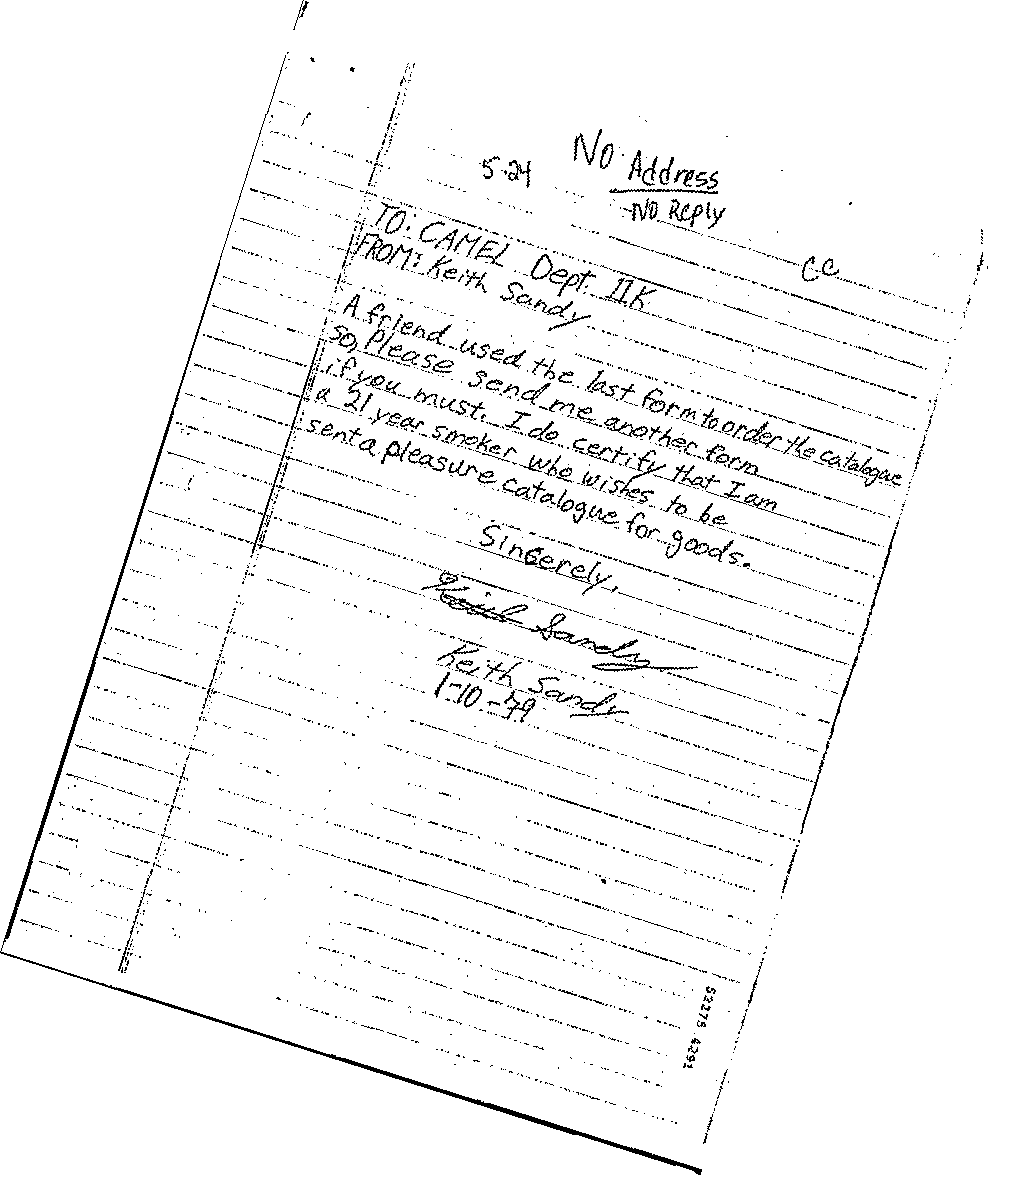 5-24
No Address
No Reply
CC
TO: CAMEL Dept. IIK
FROM: Keith Sandy
A friend used the last form to order the catalogue
so, Please send me another form
if you must. I do certify that I am
a 21 year smoker who wishes to be
sent a pleasure catalogue for goods.
Sincerely,
Keith Sandy
Keith Sandy
1-10-79
52275 4291